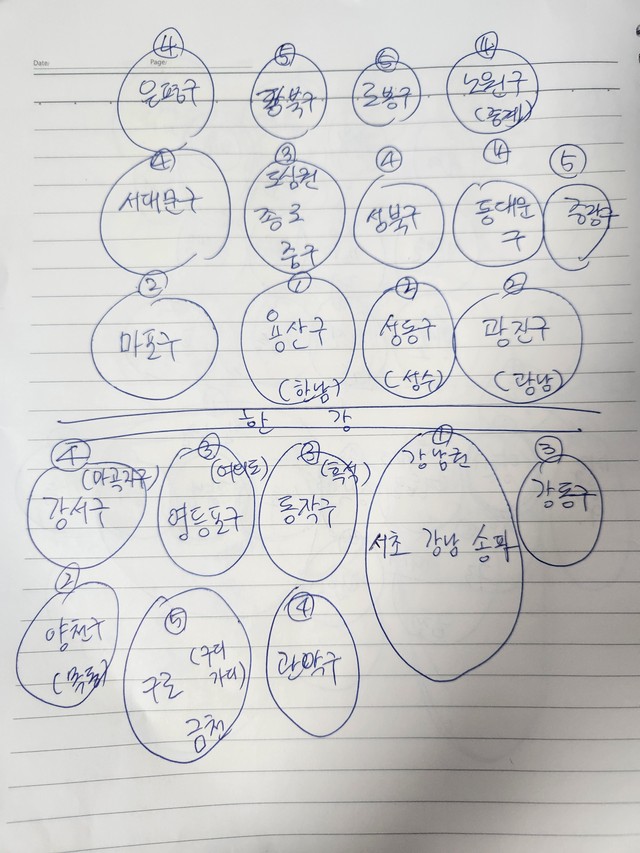 Date:
Page:
④ ⑤ ⑥ ④
은평구 강북구 도봉구 노원구
(중계)
④ ③ ④ ④ ⑤
서대문구 도심권 성북구 동대문 중랑구
종로 구
중구
② ① ② ②
마포구 용산구 성동구 광진구
(한남) (성수) (광남)
한 강
④ ③ ③ ① ③
(마곡지구) (여의도) (흑석) 강남권
강서구 영등포구 동작구 서초 강남 송파 강동구
② ⑤ ④
양천구 (구디 관악구
(목동) 구로 가디)
금천